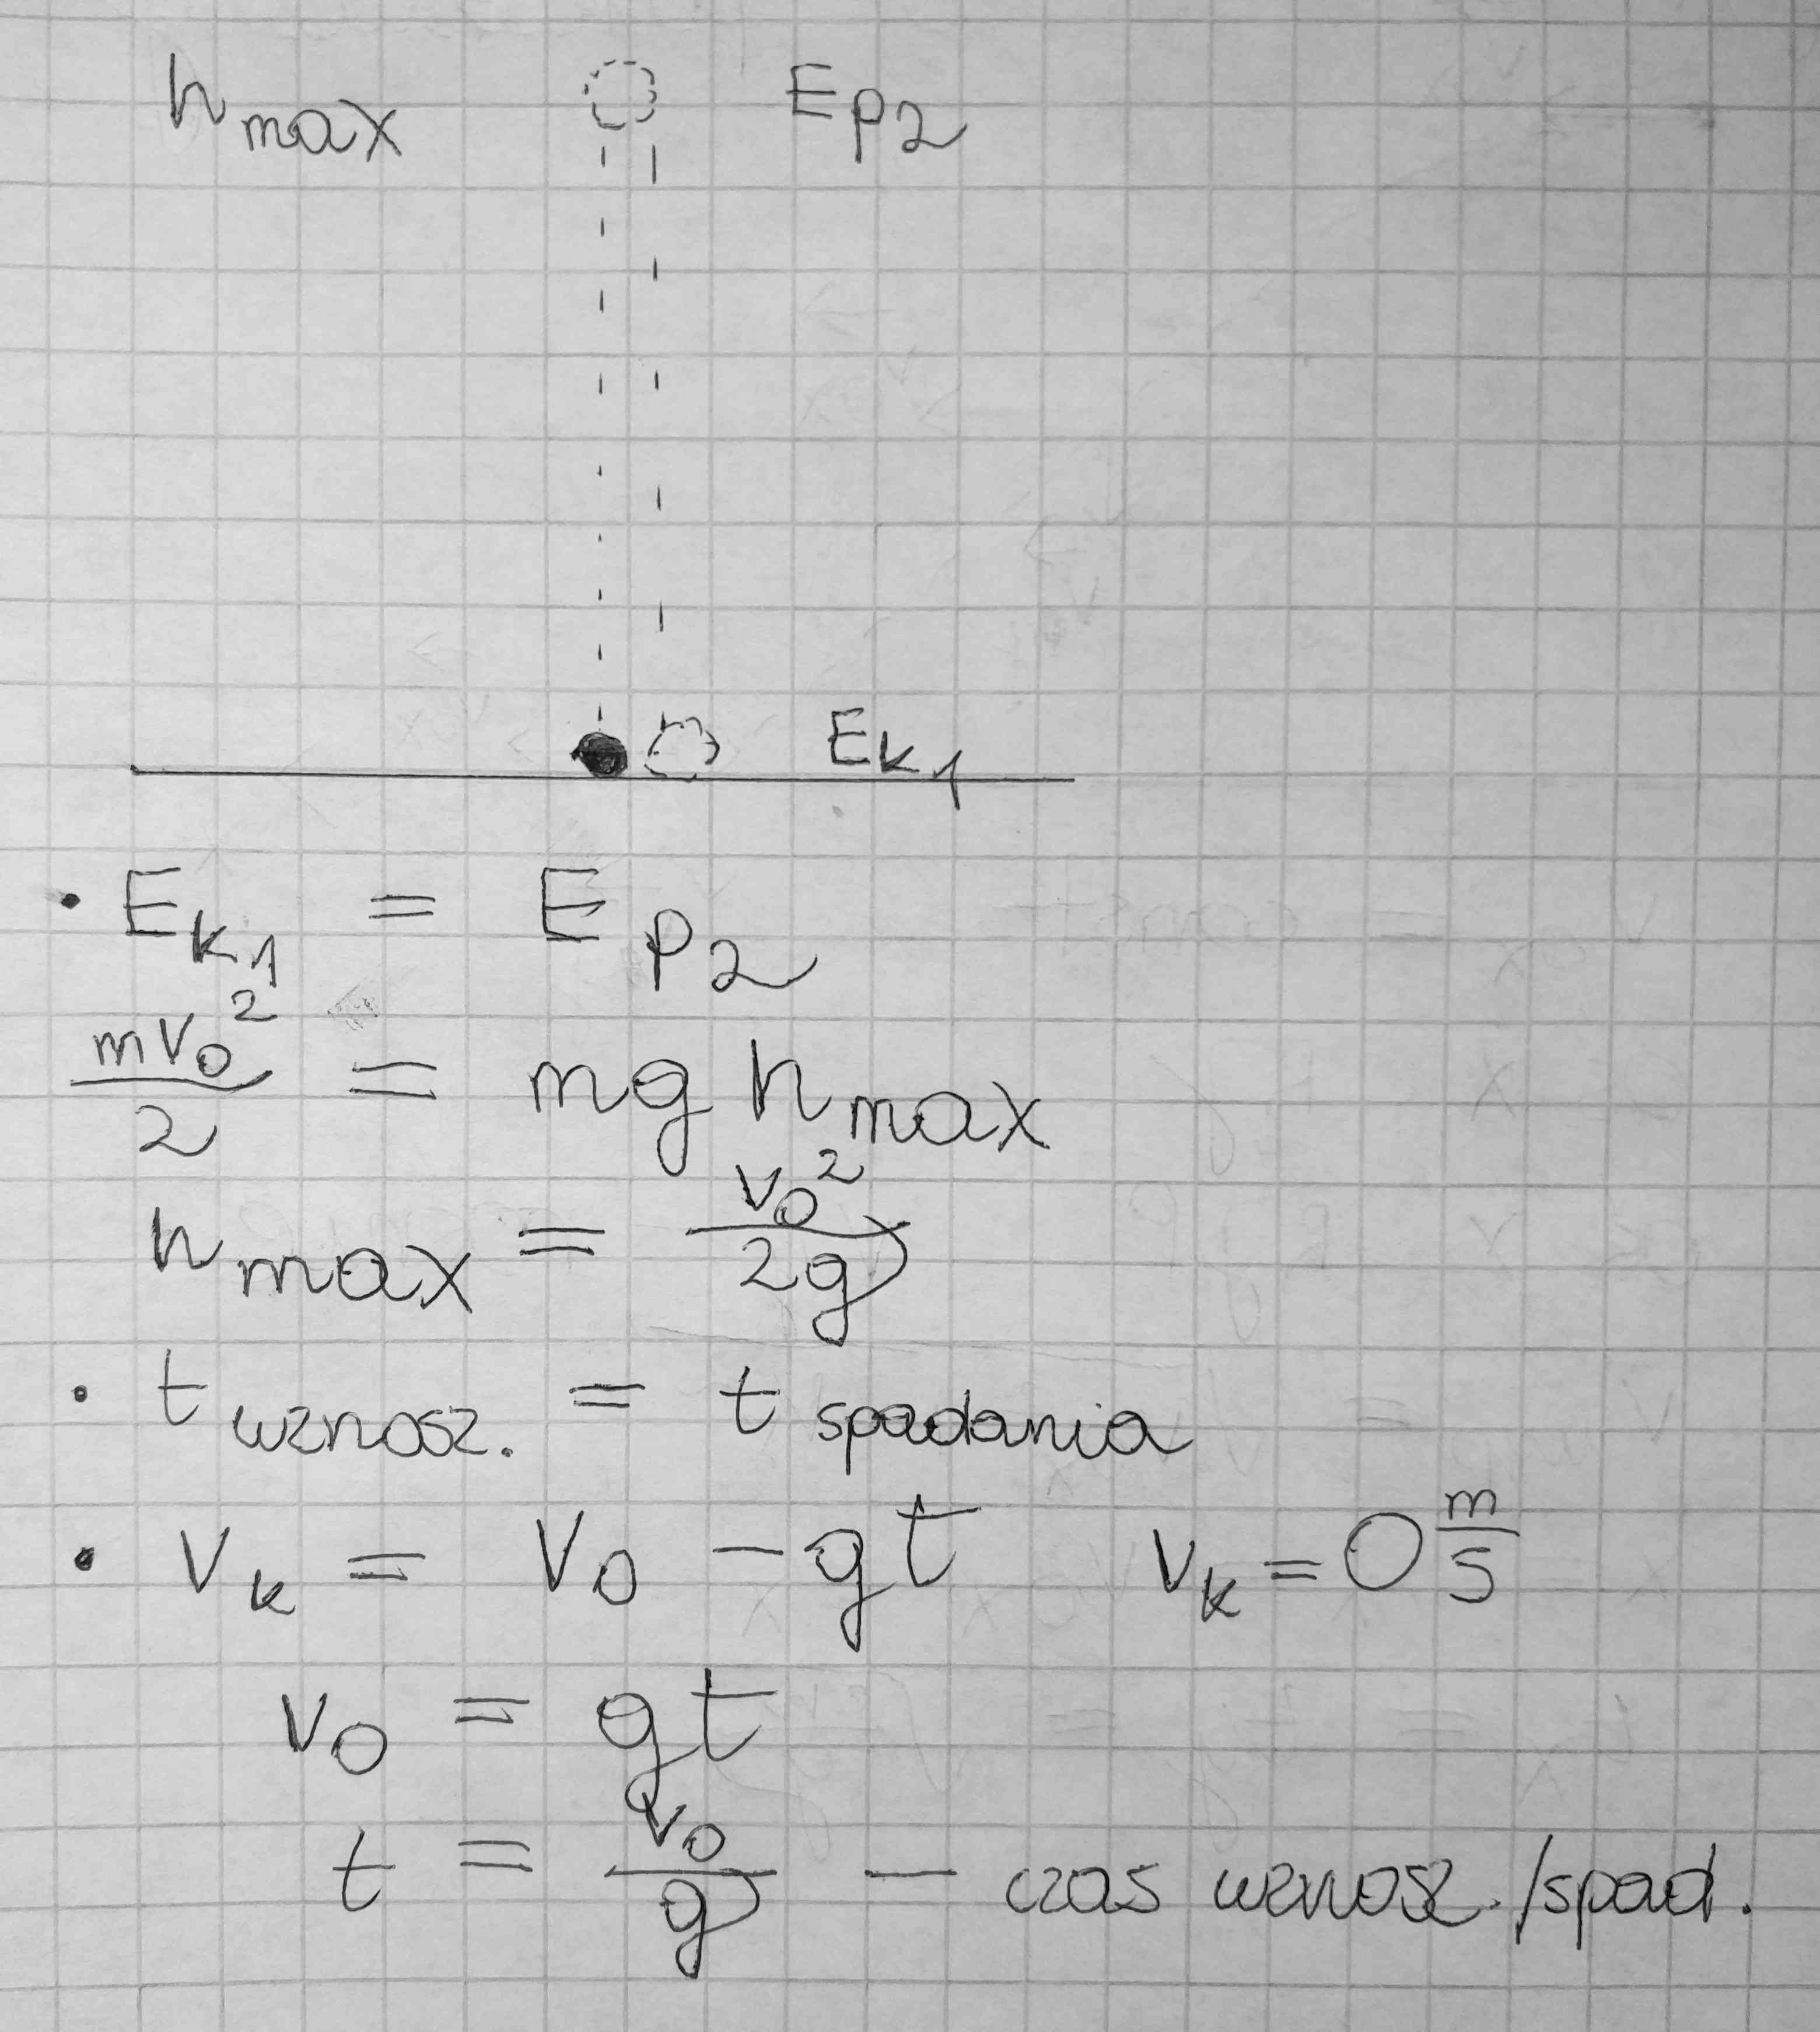 h max E p2
E k1
• E k1 = E p2
mv₀²/2 = mg h max
h max = v₀²/2g
• t wznosz. = t spadania
• v k = v₀ - gt v k = 0 m/s
v₀ = gt
t = v₀/g - czas wznosz./spad.